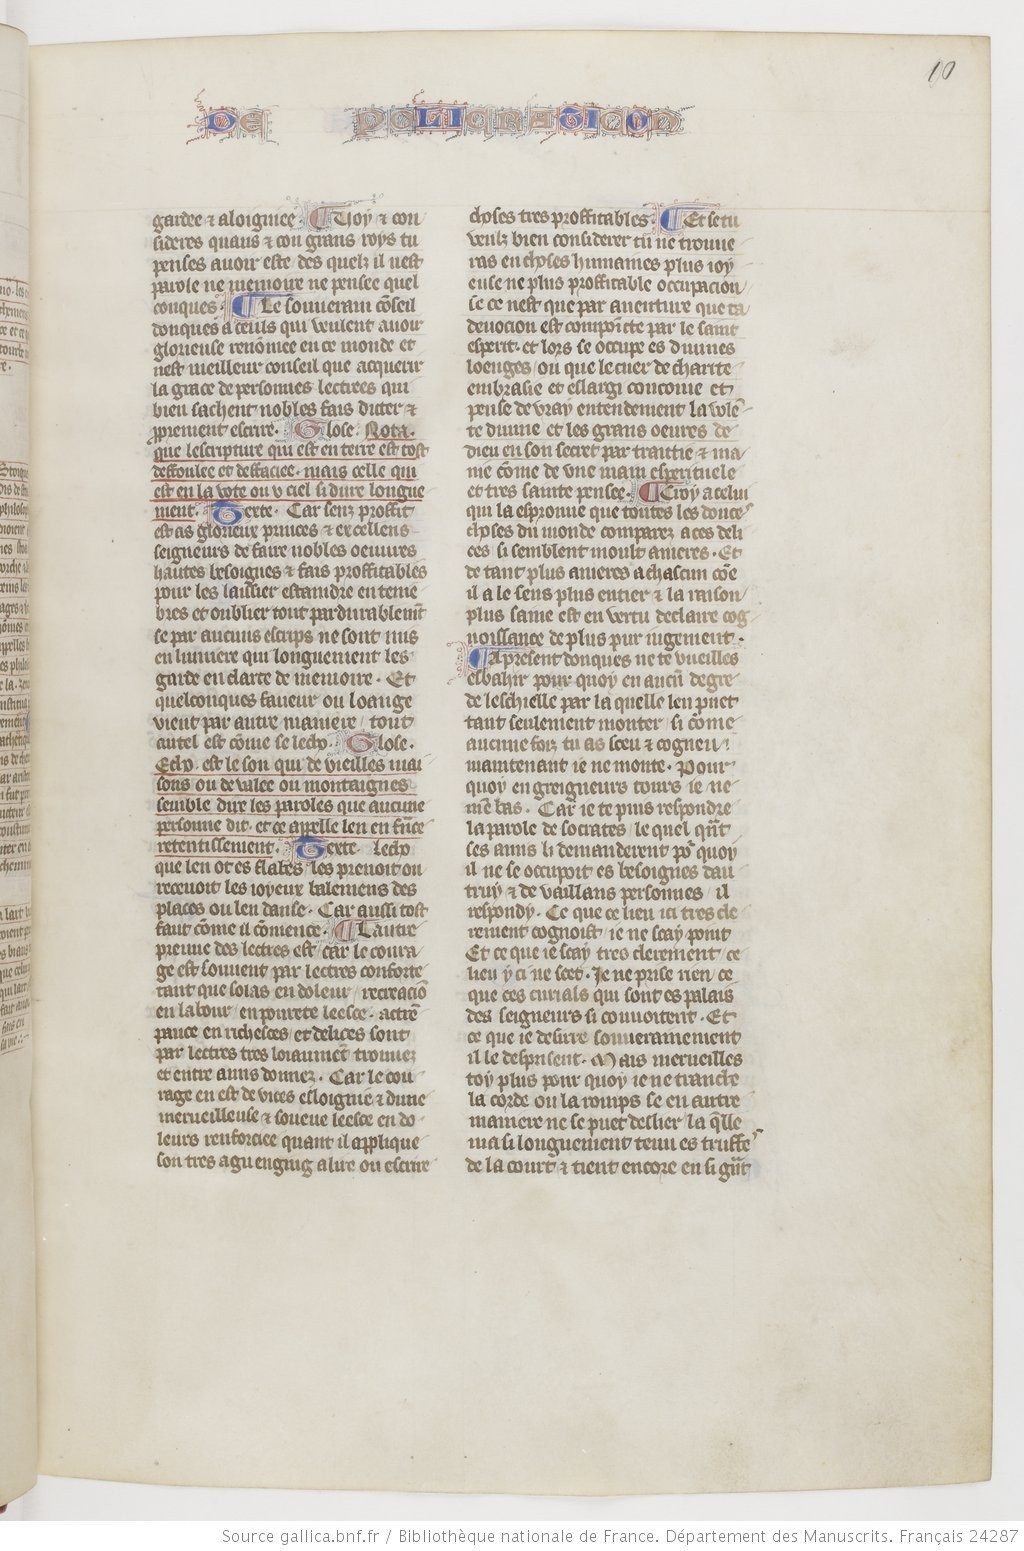 10
DE POLICRATICON
gardee ⁊ aloignee. ¶ Croy ⁊ con
sideres quans ⁊ con grans roys tu
penses avoir este des quelz il nest
parole ne memoire ne pensee quel
conques. ¶ Le souverain cōseil
donques a ceuls qui veulent avoir
glorieuse renōmee en ce monde et
nest meilleur conseil que acquerir
la grace de personnes lectrees qui
bien sachent nobles fais dicter ⁊
p̱prement escrire. Glose. Nota.
que lescripture qui est en terre est tost
deffoulee et deffaciee. mais celle qui
est en la vote ou v ciel si dure longue
ment. Texte. Car senz proffit
est as glorieux princes ⁊ excellens
seigneurs de faire nobles oeuvres
hautes besoignes ⁊ fais proffitables
pour les laissier estaindre en tene
bres et oublier tout pardurablemēt
se par aucuns escrips ne sont mis
en lumiere qui longuement les
garde en clarte de memoire. Et
quelconques faveur ou loange
vient par autre maniere / tout
autel est cōme se lecho. Glose.
Echo. est le son qui de vieilles mai
sons ou de valee ou montaignes
semble dire les paroles que aucune
personne dit. et ce appelle len en frāce
retentissement. Texte. lecho
que len ot es flabes / les prenoit ou
recevoit les joyeux balemens des
places ou len danse. Car aussi tost
faut cōme il cōmence. ¶ Lautre
preuve des lectres est / car le coura
ge est souvent par lectres conforte
tant que solas en doleur / recreaciō
en labour / en povrete leesce. actrē
pance en richesces / et delices sont
par lectres tres loiaumēt trouvez
et entre amis donnez. Car le cou
rage en est de vices esloignie ⁊ dune
merveilleuse ⁊ soueve leesce en do
leurs renforciee quant il applique
son tres agu enging a lire ou escrire
choses tres proffitables. ¶ Et se tu
veulz bien considerer tu ne trouve
ras en choses humaines plus joy
euse ne plus proffitable occupacion
se ce nest que par aventure que ta
devocion est compōicte par le saint
esperit. et lors se occupe es divines
loenges / ou que le cuer de charite
embrasie et eslargi concoive et
pense de vray entendement la volē
te divine et les grans oeuvres de
dieu en son secret par traictie ⁊ ma
nie cōme de une main esperituele
et tres sainte pensee. ¶ Croy a celui
qui la esprouve que toutes les douces
choses du monde comparez a ces deli
ces si semblent moult ameres. Et
de tant plus ameres a chascun cōe
il a le sens plus entier ⁊ la raison
plus saine est en vertu declaire cog
noissance de plus pur jugement.
¶ A present donques ne te vueilles
esbahir pour quoy en aucū degre
de leschielle par la quelle len puet
tant seulement monter / si cōme
aucune foiz tu as sceu ⁊ cogneu /
maintenant je ne monte. Pour
quoy en greigneurs tours je ne
mēbas. Car je te puis respondre
la parole de socrates / le quel quāt
ses amis li demanderent poʳ quoy
il ne se occupoit es besoignes dau
truy ⁊ de vaillans personnes / il
respondy. Ce que ce lieu ici tres cle
rement cognoist / je ne scay point
Et ce que je scay tres clerement ce
lieu y ci ne scet. Je ne prise rien ce
que ces curials qui sont es palais
des seigneurs si convoitent. Et
ce que je desire souverainement
il le desprisent. Mais merveilles
toy plus pour quoy je ne tranche
la corde ou la romps se en autre
maniere ne se puet deslier / la q̄lle
ma si longuement tenu es truffes
de la court ⁊ tient encore en si grāt
Source gallica.bnf.fr / Bibliothèque nationale de France. Département des Manuscrits. Français 24287